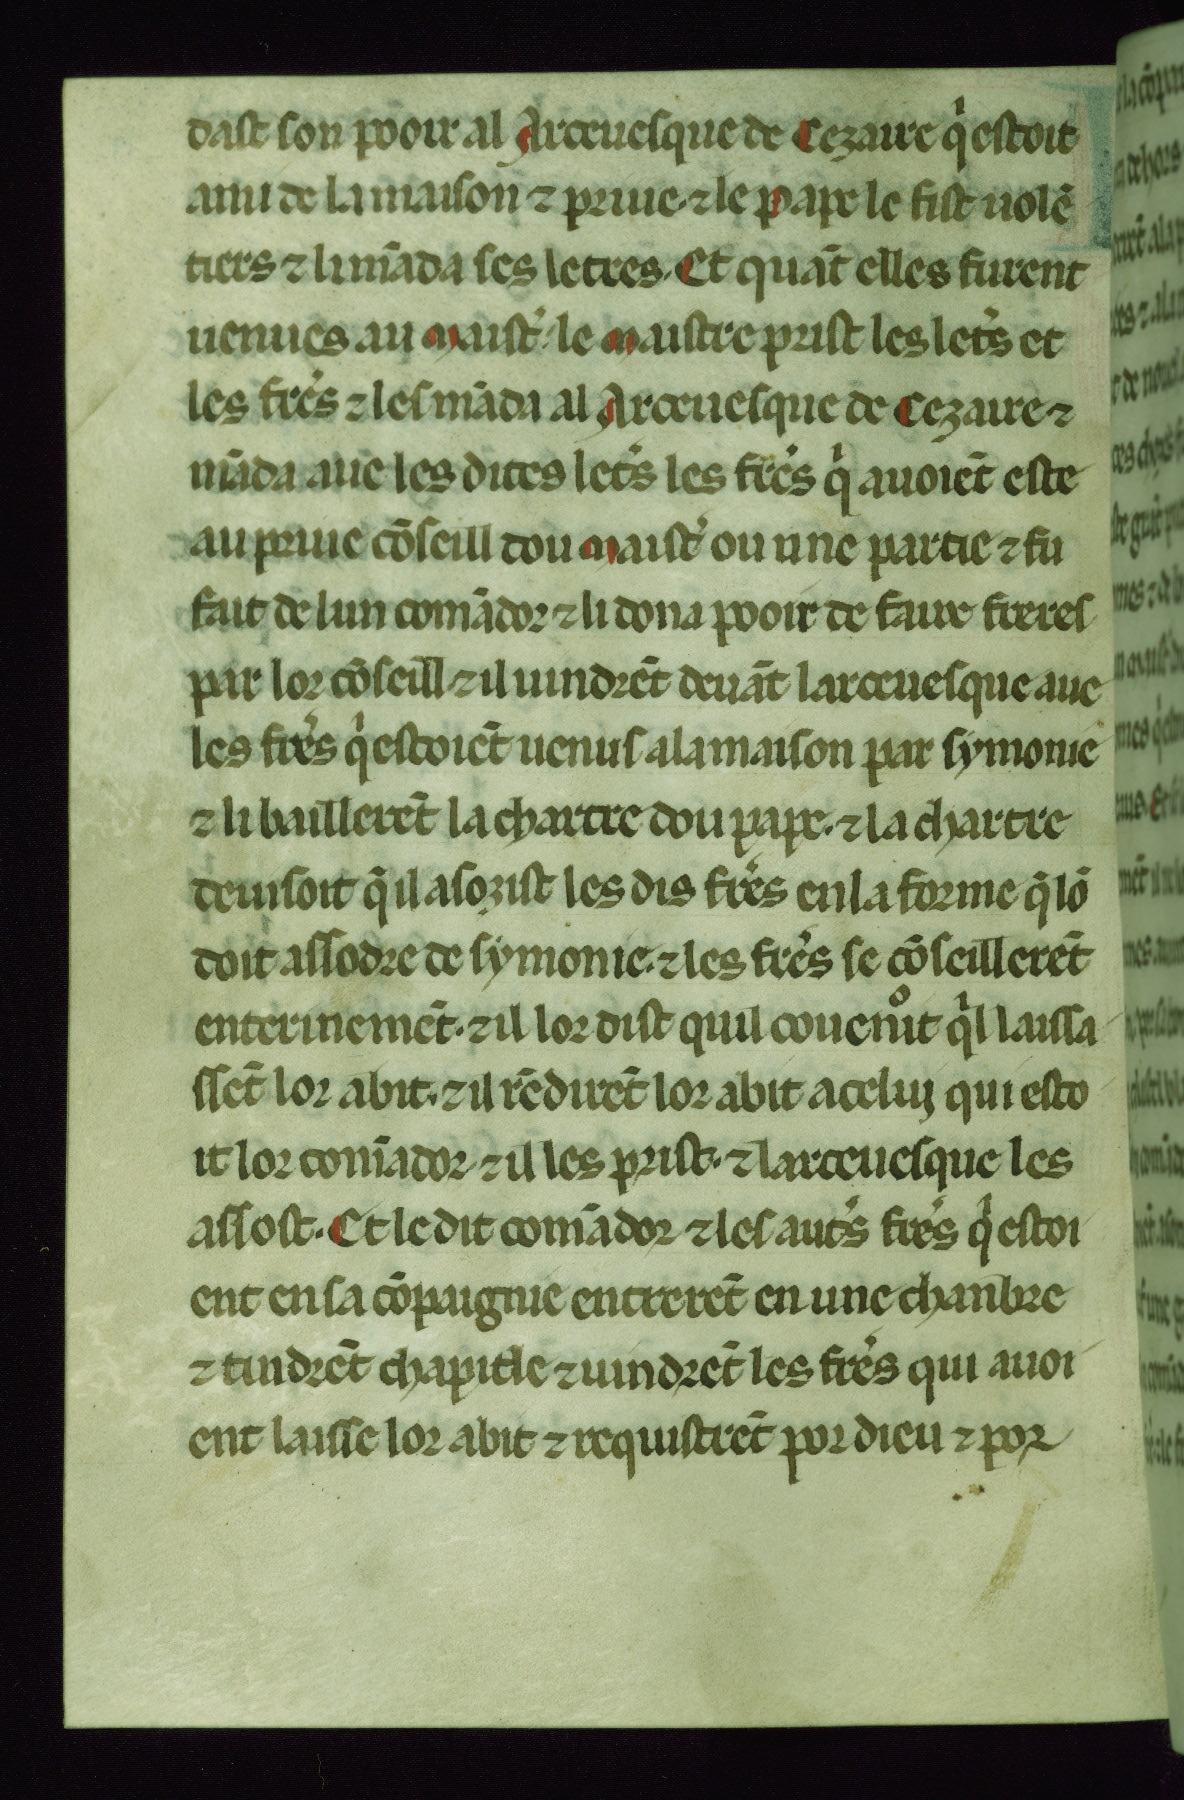 dast son pooir al Arceuesque de Cezaire q̍ estoit
ami de la maison ⁊ priue. ⁊ le pape le fist uolē
tiers ⁊ li māda ses letres. Et quāt elles furent
uenues au maist̉. le maistre prist les let̉s et
les fre̍s ⁊ les māda al Arceuesque de Cezaire ⁊
māda aue les dites let̉s les fre̍s q̍ auoiēt este
au priue cōseill dou maist̉ ou une partie ⁊ fu
fait de lun comādor ⁊ li dona pooir de faire freres
par lor cōseill ⁊ il uindrēt deuāt larceuesque aue
les fre̍s q̍ estoiēt uenus a la maison par symonie
⁊ li baillerēt la chartre dou pape. ⁊ la chartre
deuisoit q̄ il asozist les dis fre̍s en la forme q̄ lō
doit assodre de symonie. ⁊ les fre̍s se cōseillerēt
enterinemēt. ⁊ il lor dist quil couenoͥt q̍l laissa
ssēt lor abit. ⁊ il rēdirēt lor abit a celuj qui esto
it lor comādor ⁊ il les prist. ⁊ larceuesque les
assost. Et le dit comādor ⁊ les aut̉s fre̍s q̍ estoi
ent en sa cōpaignie entrerēt en une chanbre
⁊ tindrēt chapitle ⁊ uindrēt les fre̍s qui auoi
ent laisse lor abit ⁊ requistrēt por dieu ⁊ por